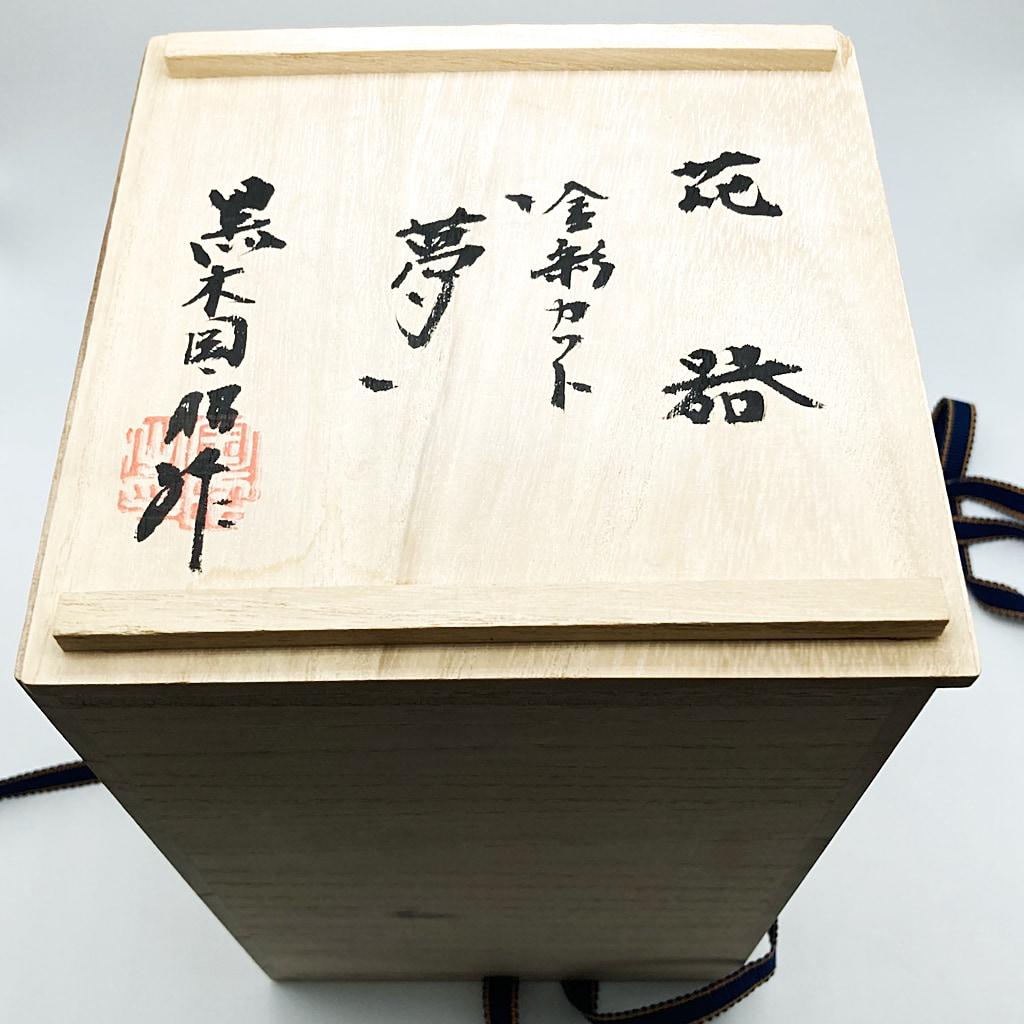 花器
金彩カット
夢
黒木国昭作